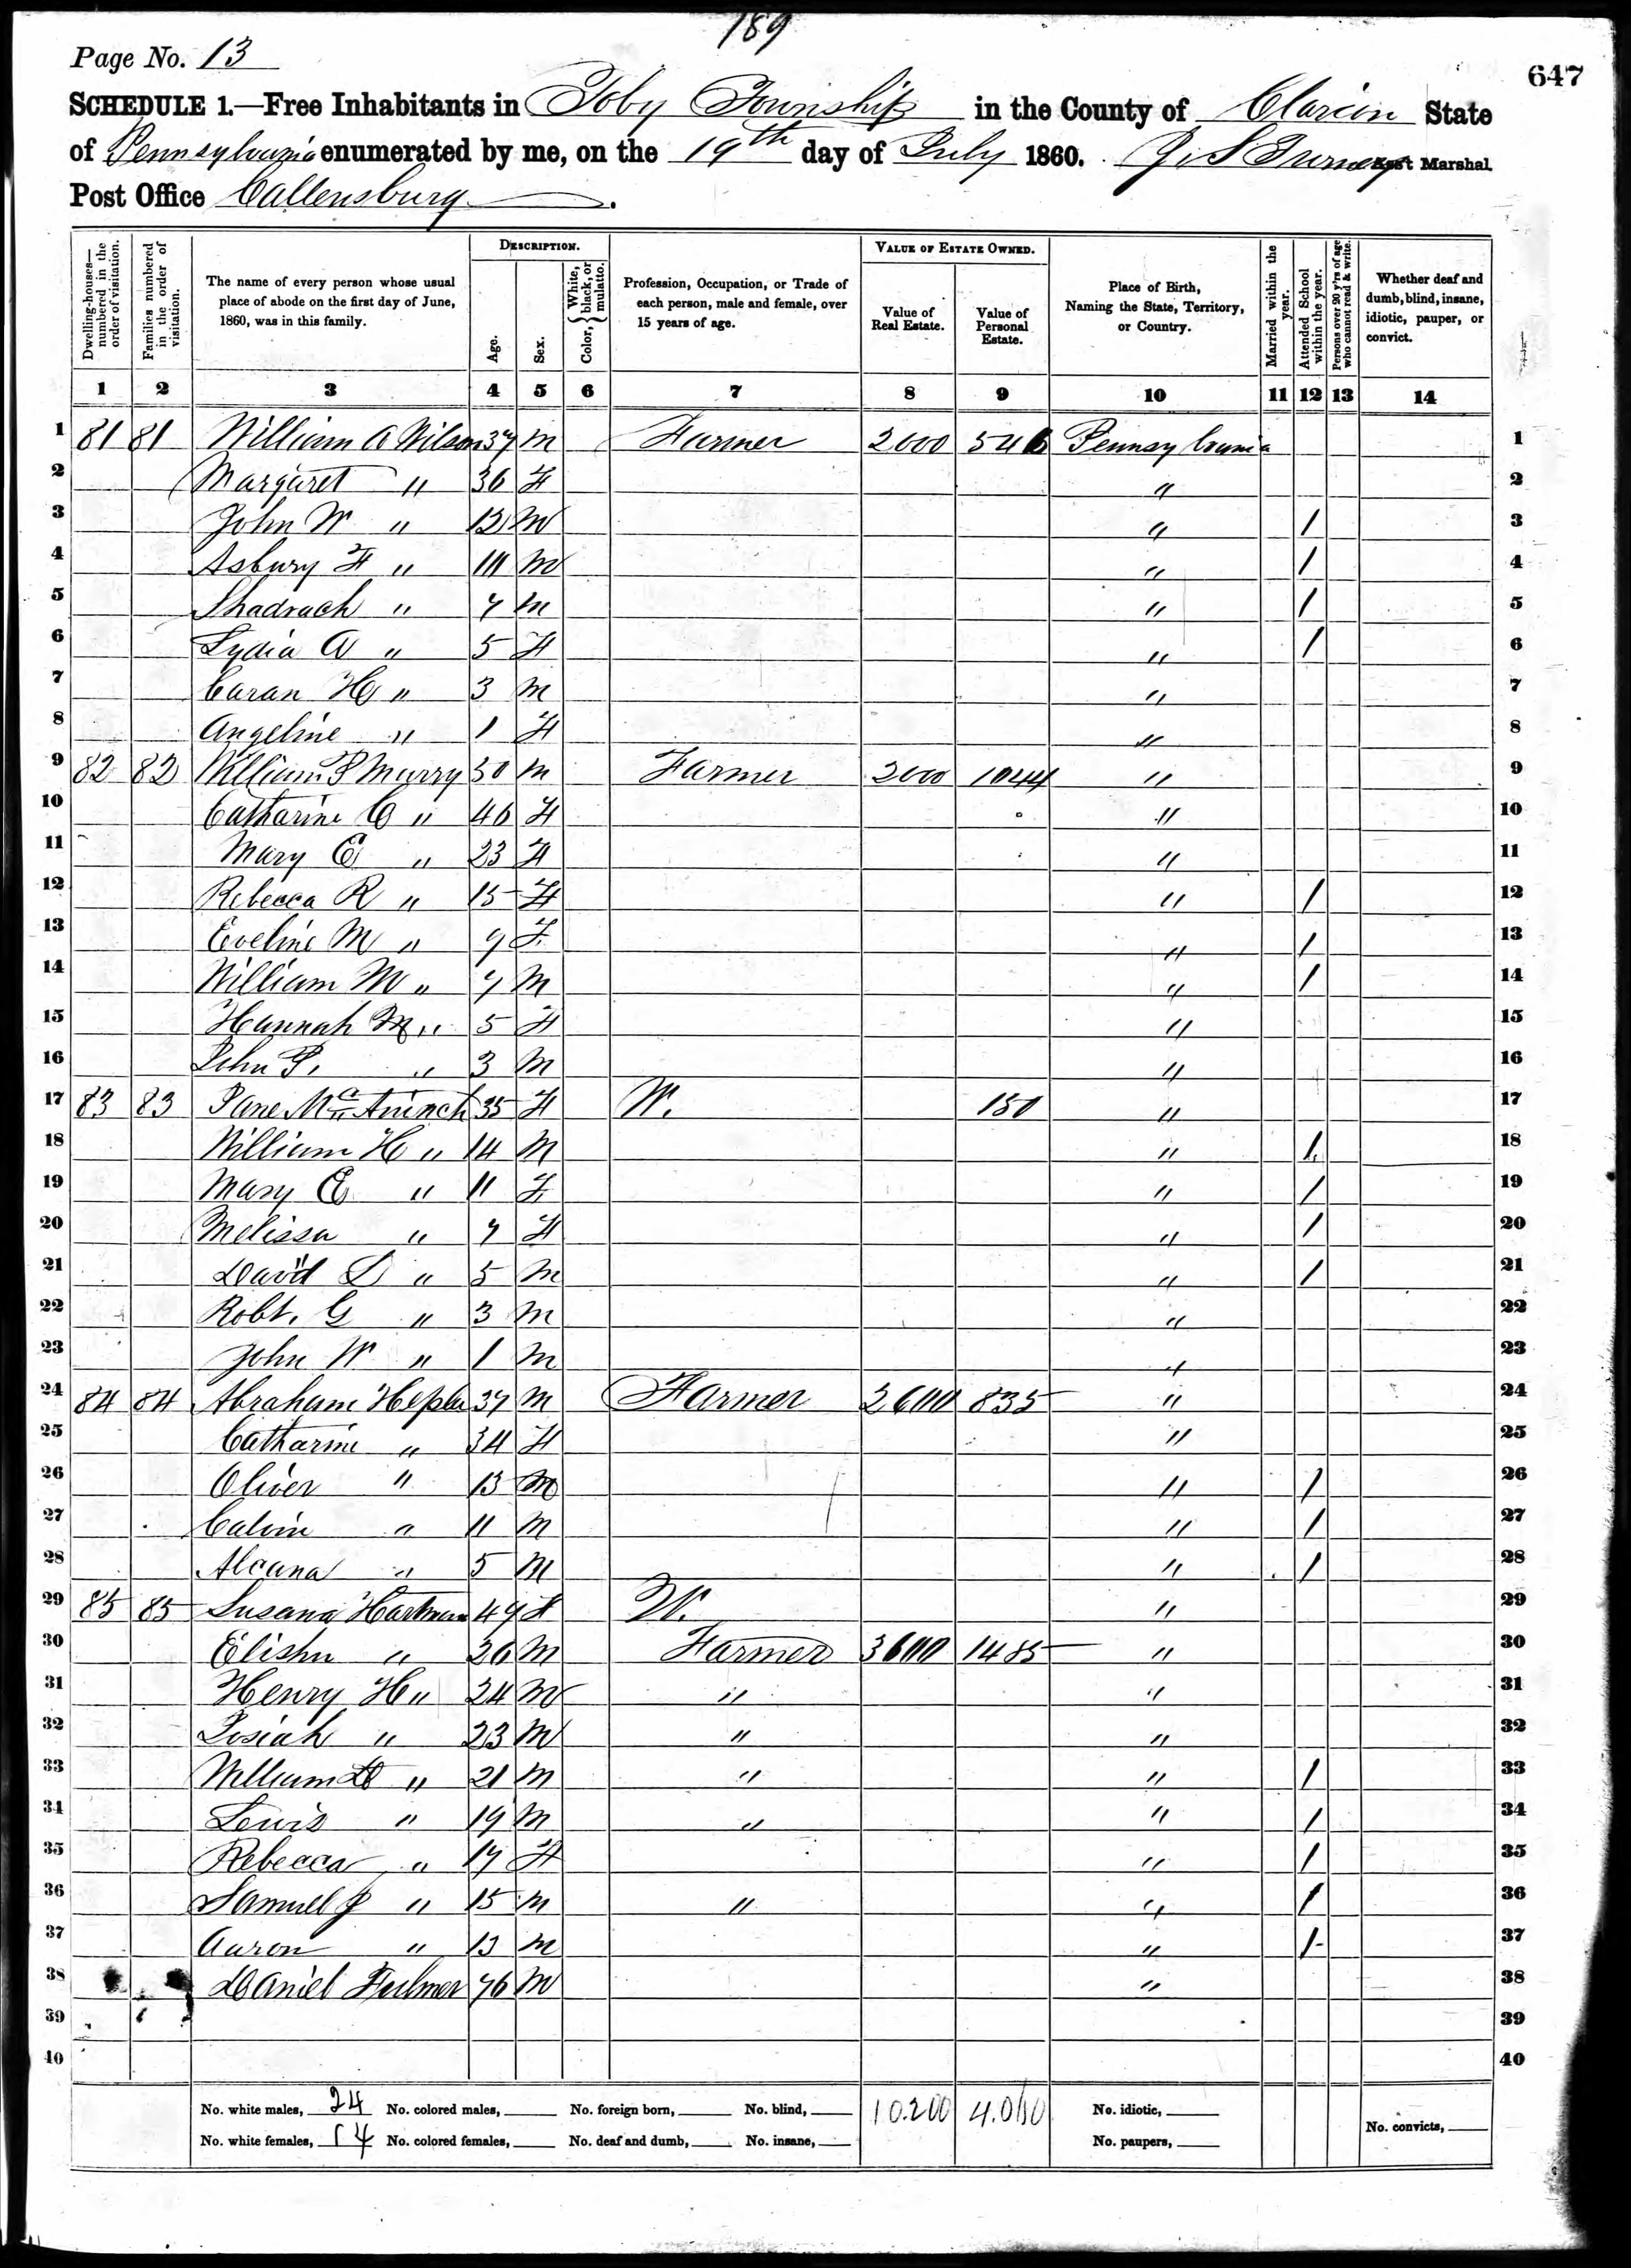 189
Page No. 13
647
SCHEDULE 1.—Free Inhabitants in Toby Township in the County of Clarion State
of Pennsylvania enumerated by me, on the 19th day of July 1860. J. S. Turney Ass't Marshal.
Post Office Callensburg.
Dwelling-houses—numbered in the order of visitation.
Families numbered in the order of visitation.
The name of every person whose usual place of abode on the first day of June, 1860, was in this family.
DESCRIPTION.
Age.
Sex.
Color, { White, black, or mulatto.
Profession, Occupation, or Trade of each person, male and female, over 15 years of age.
VALUE OF ESTATE OWNED.
Value of Real Estate.
Value of Personal Estate.
Place of Birth, Naming the State, Territory, or Country.
Married within the year.
Attended School within the year.
Persons over 20 y'rs of age who cannot read & write.
Whether deaf and dumb, blind, insane, idiotic, pauper, or convict.
1 2 3 4 5 6 7 8 9 10 11 12 13 14
1 81 81 William A Wilson 37 M Farmer 2000 546 Pennsylvania 1
2 Margaret " 36 F " 2
3 John W " 12 M " / 3
4 Asbury F " 10 M " / 4
5 Shadrach " 7 M " / 5
6 Lydia A " 5 F " / 6
7 Caran H " 3 M " 7
8 Angeline " 1 F " 8
9 82 82 William P Murry 50 M Farmer 2000 1044 " 9
10 Catharine C " 46 F " 10
11 Mary E " 23 F " 11
12 Rebecca R " 15 F " / 12
13 Eveline M " 9 F " / 13
14 William M " 7 M " / 14
15 Hannah M " 5 F " 15
16 John P. " 3 M " 16
17 83 83 Jane McAninch 35 F W. 150 " 17
18 William H " 14 M " / 18
19 Mary E " 11 F " / 19
20 Melissa " 7 F " / 20
21 David L " 5 M " / 21
22 Robt. G " 3 M " 22
23 John W " 1 M " 23
24 84 84 Abraham Hepler 37 M Farmer 2600 835 " 24
25 Catharine " 34 F " 25
26 Oliver " 13 M " / 26
27 Calvin " 11 M " / 27
28 Alcana " 5 M " / 28
29 85 85 Susana Hartman 49 F W. " 29
30 Elisha " 26 M Farmer 3600 1485 " 30
31 Henry H " 24 M " " 31
32 Josiah " 23 M " " 32
33 William D " 21 M " " / 33
34 Lewis " 19 M " " / 34
35 Rebecca " 17 F " / 35
36 Samuel J " 15 M " " / 36
37 Aaron " 13 M " / 37
38 Daniel Fulmer 76 M " 38
39 39
40 40
No. white males, 24 No. colored males, No. foreign born, No. blind, 10.200 4.060 No. idiotic,
No. white females, 14 No. colored females, No. deaf and dumb, No. insane, No. paupers, No. convicts,